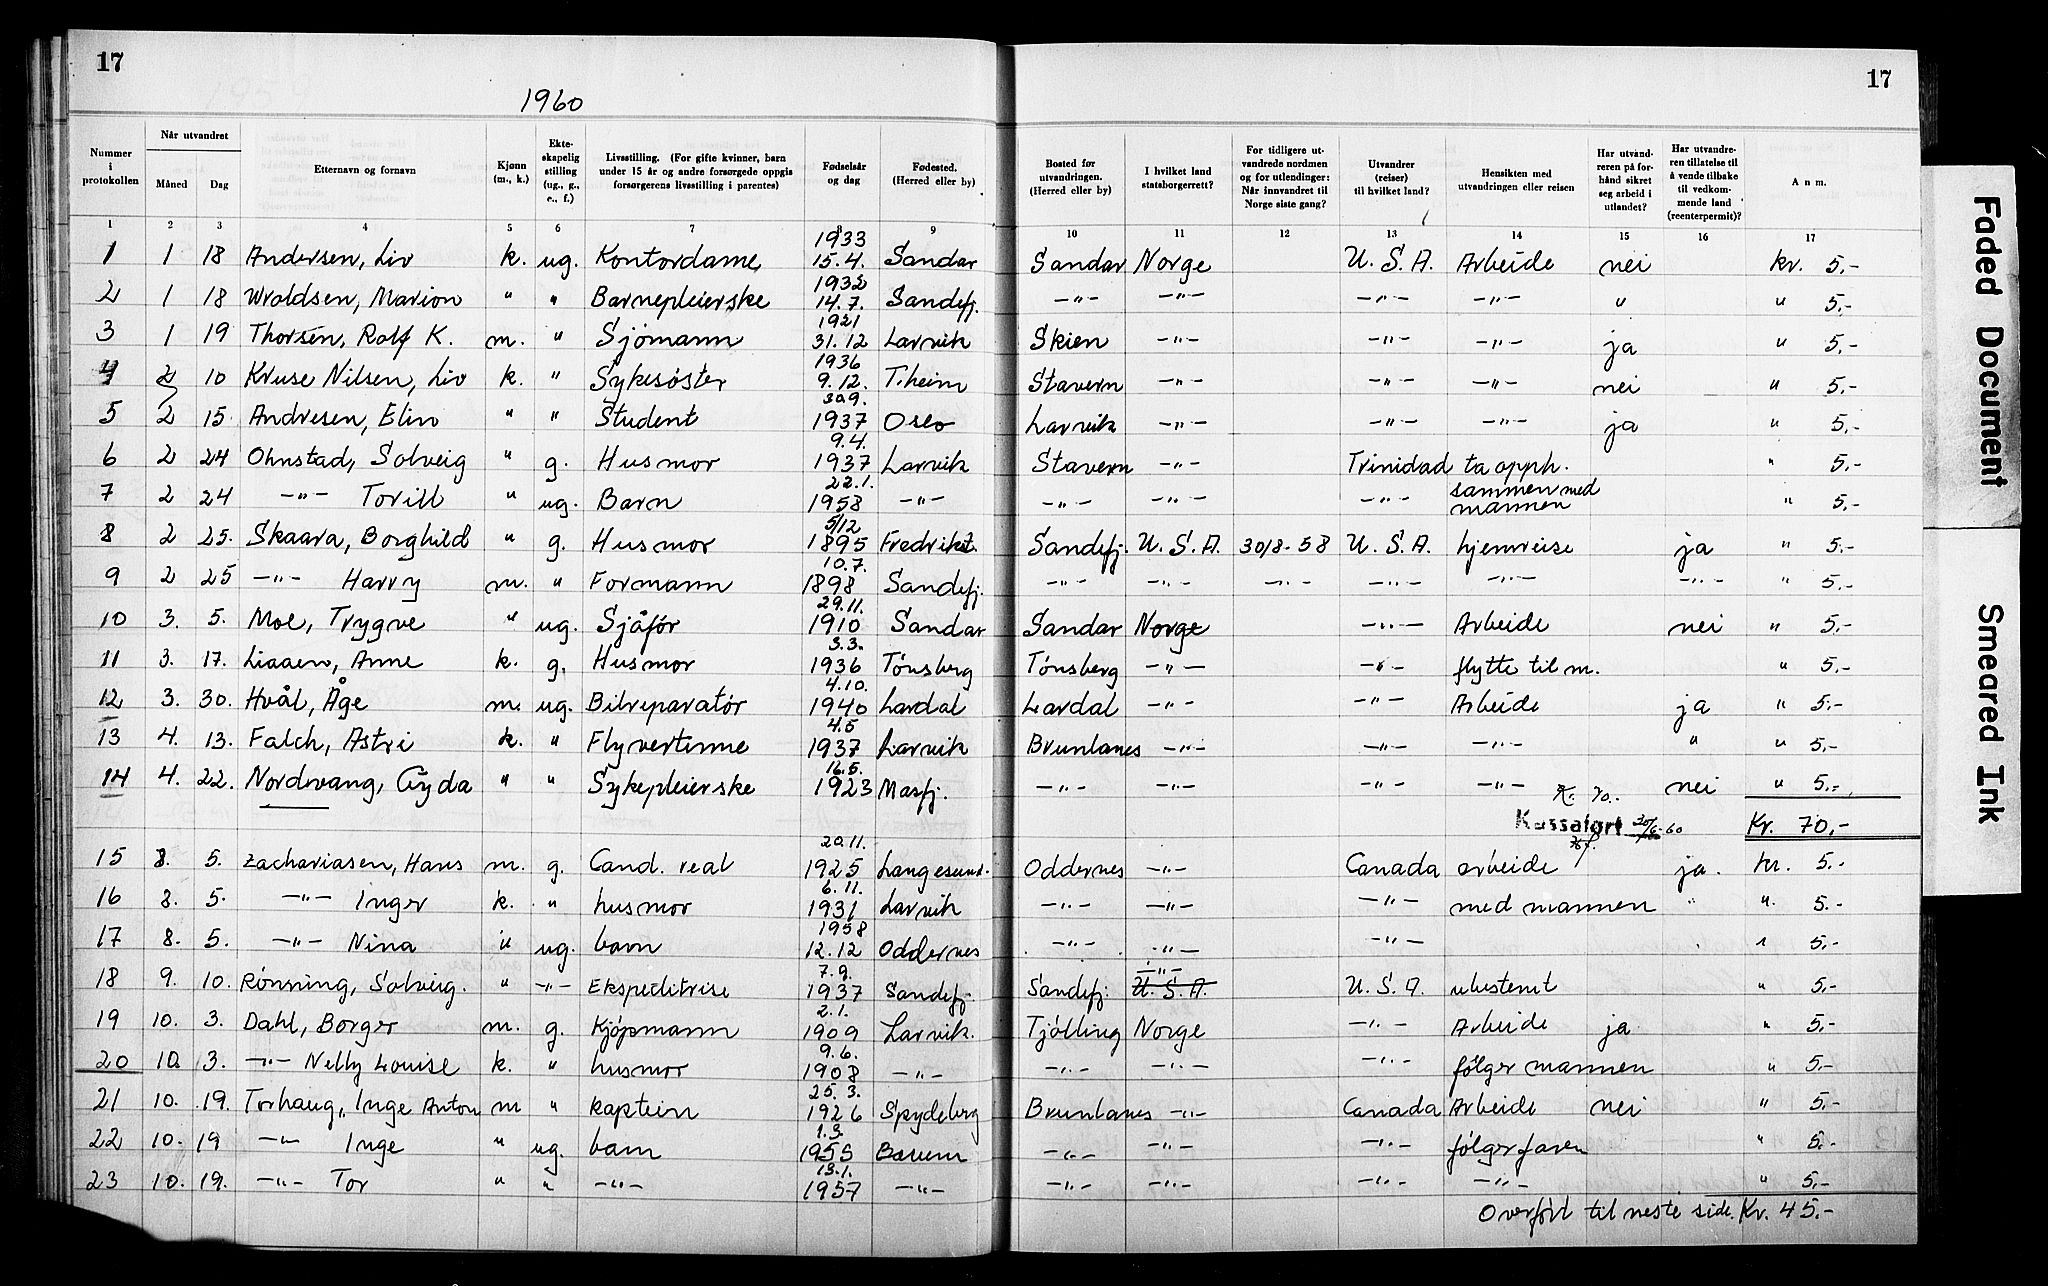 17
1960
17
Nummer i protokollen | Når utvandret: Måned | Dag | Etternavn og fornavn | Kjønn (m., k.) | Ekteskapelig stilling (ug., g., e., f.) | Livsstilling. (For gifte kvinner, barn under 15 år og andre forsørgede oppgis forsørgerens livsstilling i parentes) | Fødselsår og dag | Fødested. (Herred eller by) | Bosted før utvandringen. (Herred eller by) | I hvilket land statsborgerrett? | For tidligere utvandrede nordmen og for utlendinger: Når innvandret til Norge siste gang? | Utvandrer (reiser) til hvilket land? | Hensikten med utvandringen eller reisen | Har utvandreren på forhånd sikret seg arbeid i utlandet? | Har utvandreren tillatelse til å vende tilbake til vedkommende land (reenterpermit)? | Anm.
1 2 3 4 5 6 7 8 9 10 11 12 13 14 15 16 17
1 1 18 Andersen, Liv k. ug. Kontordame 1933 15.4. Sandar Sandar Norge U.S.A. Arbeide nei kr. 5,-
2 1 18 Wroldsen, Marion " " Barnepleierske 1932 14.7. Sandefj. -"- -"- -"- -"- " " 5,-
3 1 19 Thorsen, Rolf K. m. " Sjömann 1921 31.12 Larvik Skien -"- -"- -"- ja " 5,-
4 2 10 Kruse Nilsen, Liv k. " Sykesøster 1936 9.12. T.heim Stavern -"- -"- -"- nei " 5,-
5 2 15. Andresen, Elin " " Student 30.9. 1937 Oslo Larvik -"- -"- -"- ja " 5,-
6 2 24 Ohnstad, Solveig " g. Husmor 9.4. 1937 Larvik Stavern -"- Trinidad ta opph. " 5,-
7 2 24 -"- Torill " ug. Barn 22.1. 1958 -"- -"- -"- -"- sammen med mannen " 5,-
8 2 25. Skaara, Borghild " g. Husmor 5/12 1895 Fredrikst. Sandefj. U.S.A. 30/8-58 U.S.A. hjemreise ja " 5,-
9 2 25 -"- Harry m. " Formann 10.7. 1898 Sandefj. -"- -"- -"- -"- -"- -"- " 5,-
10 3. 5. Moe, Trygve " ug. Sjåfør 29.11. 1910 Sandar Sandar Norge -"- Arbeide nei " 5,-
11 3. 17. Liaaen, Anne k. g. Husmor 3.3. 1936 Tønsberg Tønsberg -"- -"- flytte til m. " 5,-
12 3. 30. Hvål, Åge m. ug. Bilreparatør 4.10. 1940 Lardal Lardal -"- -"- Arbeide ja " 5,-
13 4. 13. Falch, Astri k. " Flyvertinne 4.5 1937 Larvik Brunlanes -"- -"- -"- " " 5,-
14 4. 22. Nordvang, Gyda " " Sykepleierske 16.5. 1923 Masfj. -"- -"- -"- -"- nei " 5,-
Kr. 70.
Kassaført 30/6-60 Kr. 70,-
15 8. 5. Zachariasen, Hans m. g. Cand. real 20.11. 1925 Langesund. Oddernes -"- Canada arbeide ja. kr. 5.-
16 8. 5. -"- Inger k. " husmor 6.11. 1931 Larvik -"- -"- -"- med mannen " ". 5.-
17 8. 5. -"- Nina " ug. barn 1958 12.12 Oddernes -"- -"- -"- " 5,-
18 9. 10. Rønning, Solveig. " -"- Ekspeditrise 7.9. 1937 Sandefj. Sandefj. -"- U.S.A. U.S.A. ubestemt " 5,-
19 10. 3. Dahl, Borger m. g. Kjøpmann 2.1. 1909 Larvik. Tjølling Norge -"- Arbeide ja " 5,-
20 10. 3. -"- Nelly Louise k. " husmor 9.6. 1908 -"- -"- -"- -"- følger mannen " 5,-
21 10. 19. Torhaug, Inge Anton m " kaptein 25.3. 1926 Spydeberg Brunlanes -"- Canada Arbeide nei " 5,-
22 10. 19 -"- Inge " ug. barn 1.3. 1955 Bærum -"- -"- -"- følger faren " 5.-
23 10. 19. -"- Tor " " -"- 13.1. 1957 -"- -"- -"- -"- -"- " 5,-
Overført til neste side. Kr. 45.-
Faded Document
Smeared Ink